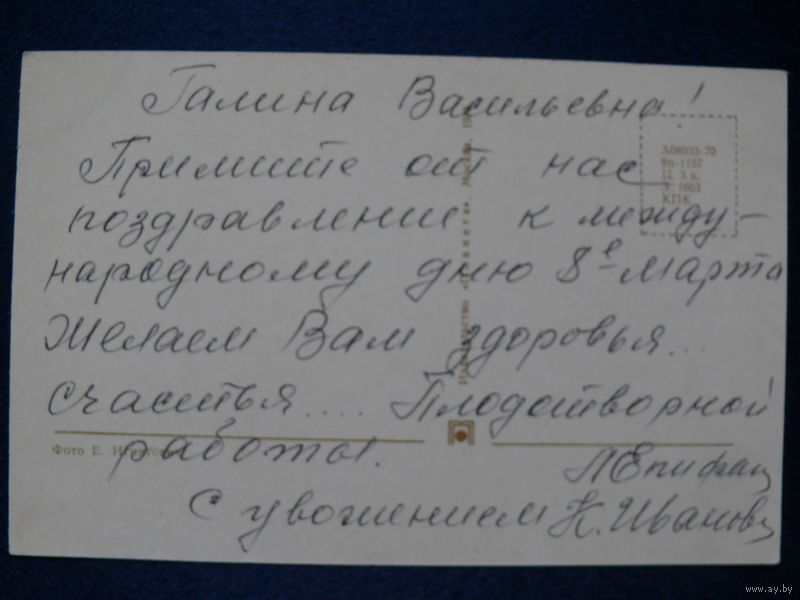 Галина Васильевна!
Примите от нас
поздравление к между-
народному дню 8е Марта
Желаем Вам здоровья...
счастья.... Плодотворной
работы.
Л Епифан
С увожением К. Иванов
А08033-70
Зп-1157
Ц. 3 к.
З. 1663
КПК
Издательство «Планета». Москва
Фото Е. Игнатович
www.ay.by